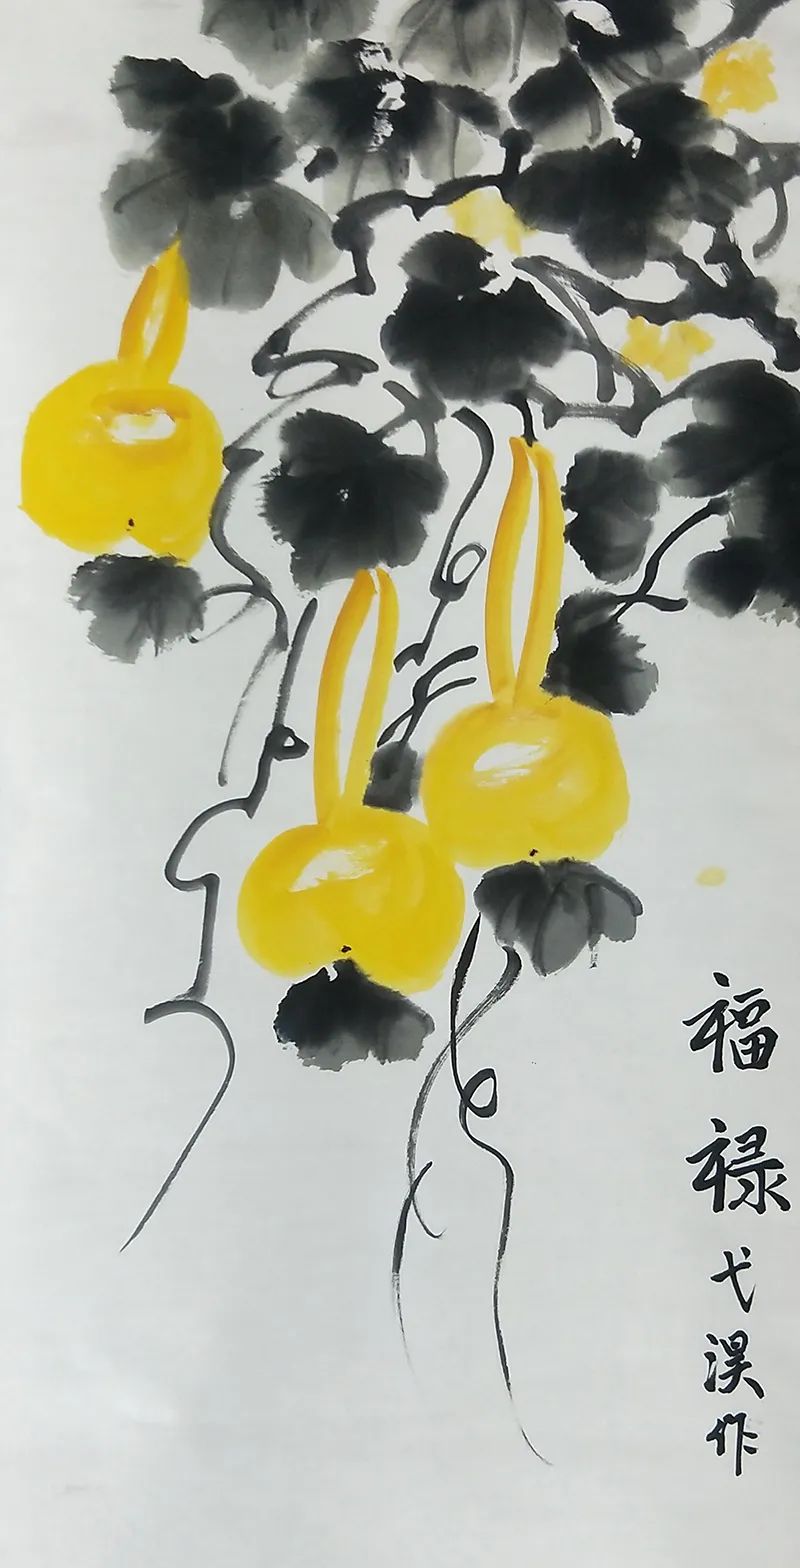 福禄弋淏作